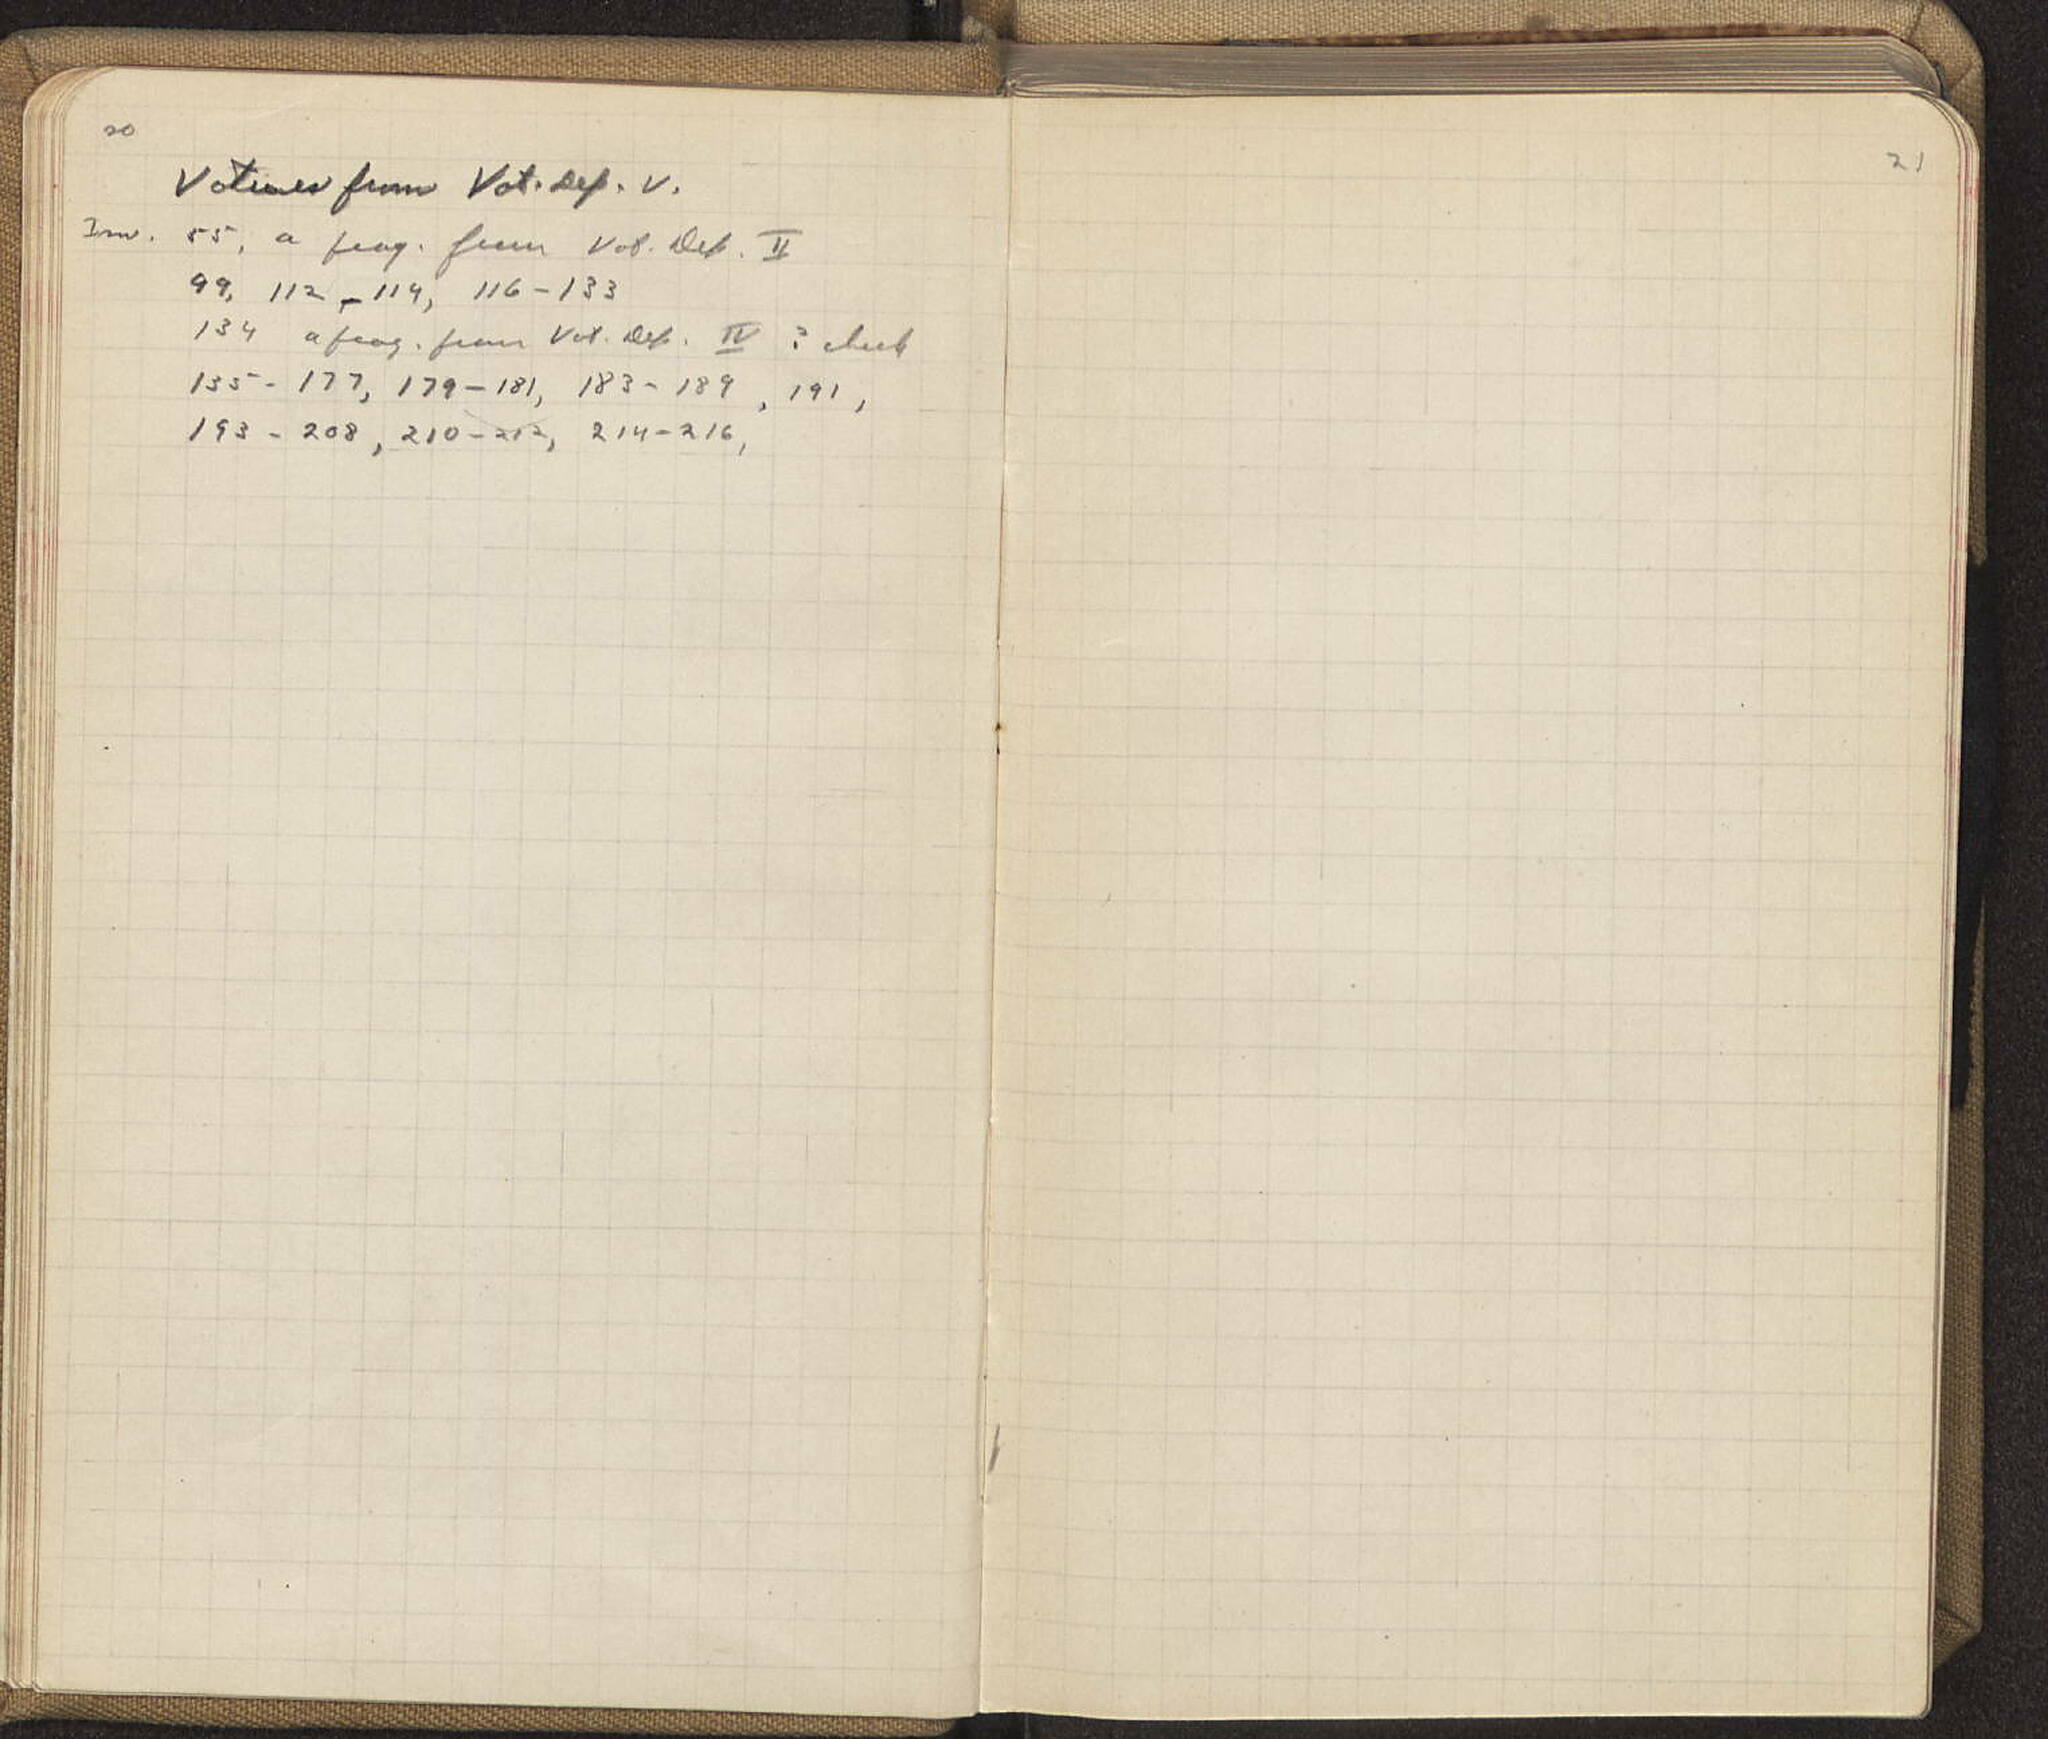 20
Votives from Vot. Dep. V.
Inv. 55, a frag. from Vot. Dep. II
99, 112-114, 116-133
134 a frag. from Vot. Dep. IV ? check
135-177, 179-181, 183-189, 191,
193-208, 210-212, 214-216,
21